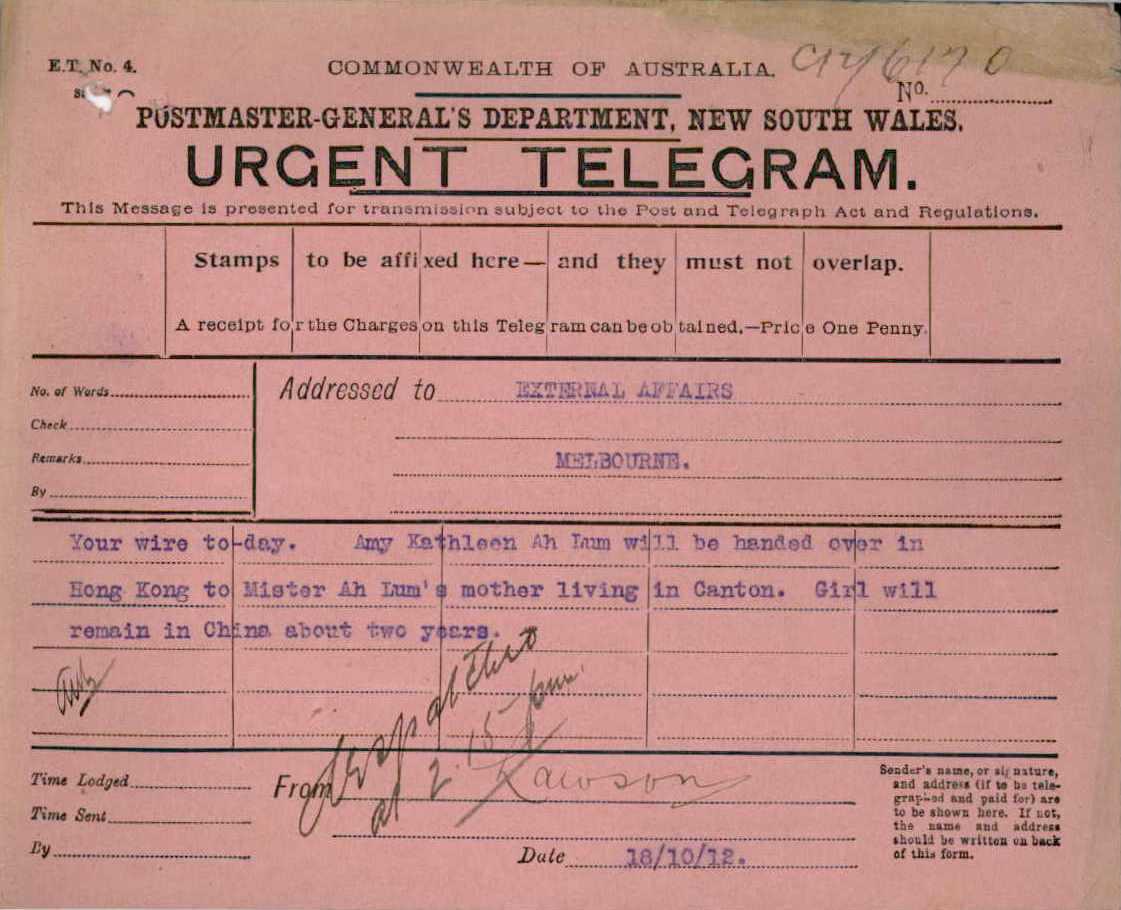 E.T. No. 4.
COMMONWEALTH OF AUSTRALIA.
No.
POSTMASTER-GENERAL'S DEPARTMENT, NEW SOUTH WALES.
URGENT TELEGRAM.
This Message is presented for transmission subject to the Post and Telegraph Act and Regulations.
Stamps to be affixed here— and they must not overlap.
A receipt for the Charges on this Telegram can be obtained.—Price One Penny.
No. of Words
Check
Remarks
By
Addressed to EXTERNAL AFFAIRS
MELBOURNE.
Your wire to-day. Amy Kathleen Ah Lum will be handed over in
Hong Kong to Mister Ah Lum's mother living in Canton. Girl will
remain in China about two years.
at 2.15 pm
Time Lodged
Time Sent
By
From Lawson
Date 18/10/12.
Sender's name, or signature,
and address (if to be tele-
graphed and paid for) are
to be shown here. If not,
the name and address
should be written on back
of this form.